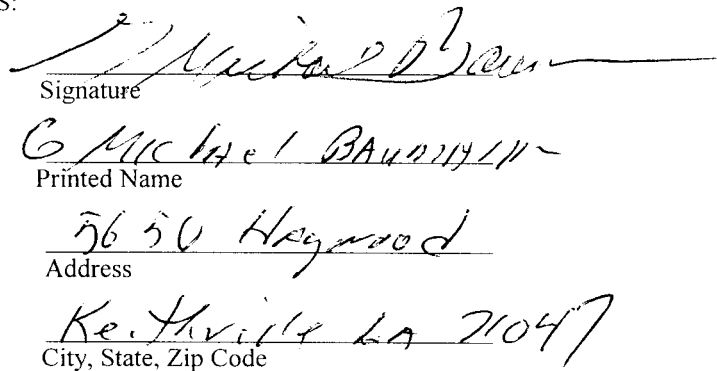 S:
Signature
G Michael
Printed Name
5650 Haywood
Address
Keithville LA 71047
City, State, Zip Code